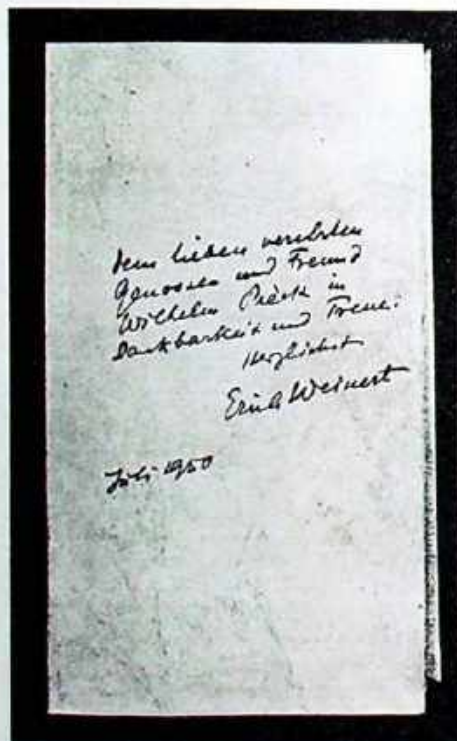 Dem lieben verehrten
Genossen und Freund
Wilhelm Pieck in
Dankbarkeit und Treue:
Herzlichst
Erich Weinert
Juli 1950